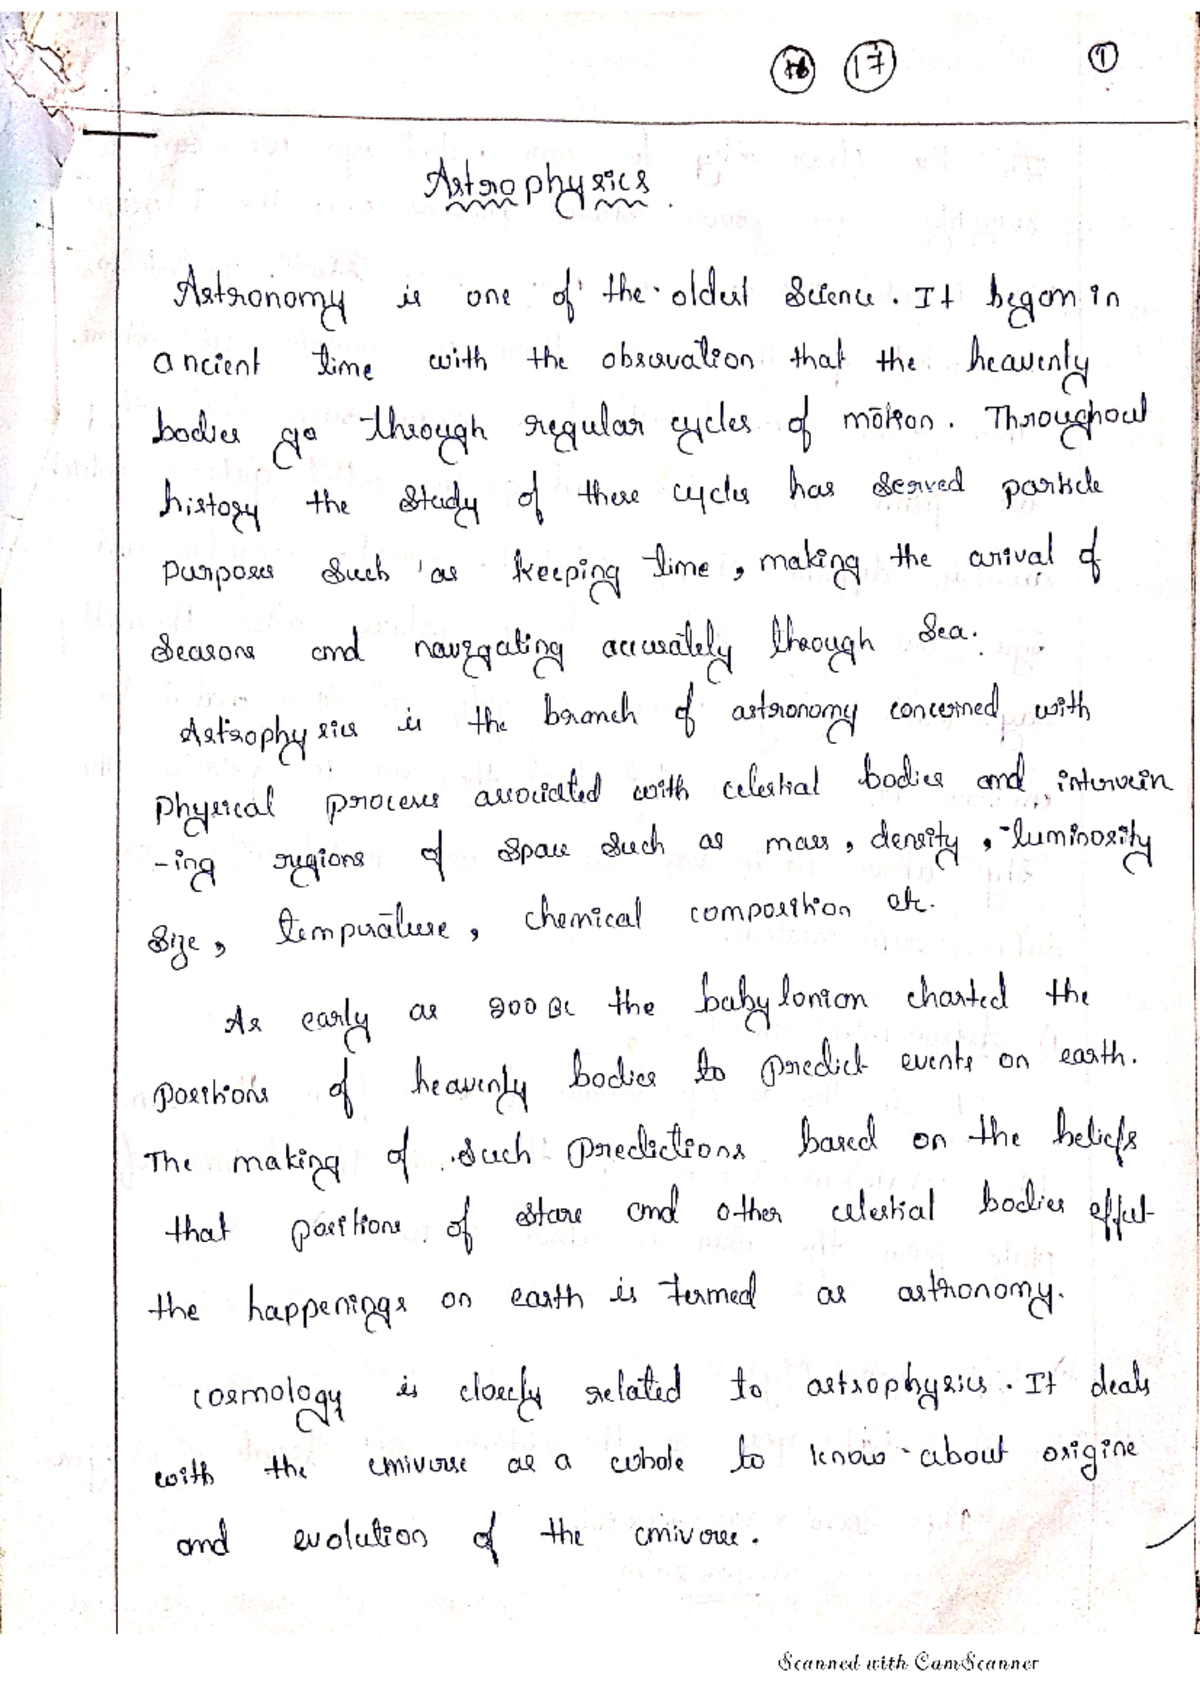 17
1
Astrophysics.
Astronomy is one of the oldest science. It began in
ancient time with the obsravation that the heavenly
bodies go through regular cycles of motion. Throughout
history the study of these cycles has served partide
purposes such as keeping time, making the arival of
seasons and navigating accurately through sea.
Astrophysics is the branch of astronomy concerned with
physical process associated with celestial bodies and intervein
-ing regions of space such as mass, density, luminosity
size, temperature, chemical composition etc.
As early as 200 BC the babylonian charted the
positions of heavenly bodies to predict events on earth.
The making of such predictions based on the beliefs
that positions of stars and other celestial bodies effect
the happenings on earth is termed as astronomy.
cosmology is closely related to astrophysics. It deals
with the universe as a whole to know about origine
and evolution of the universe.
Scanned with CamScanner